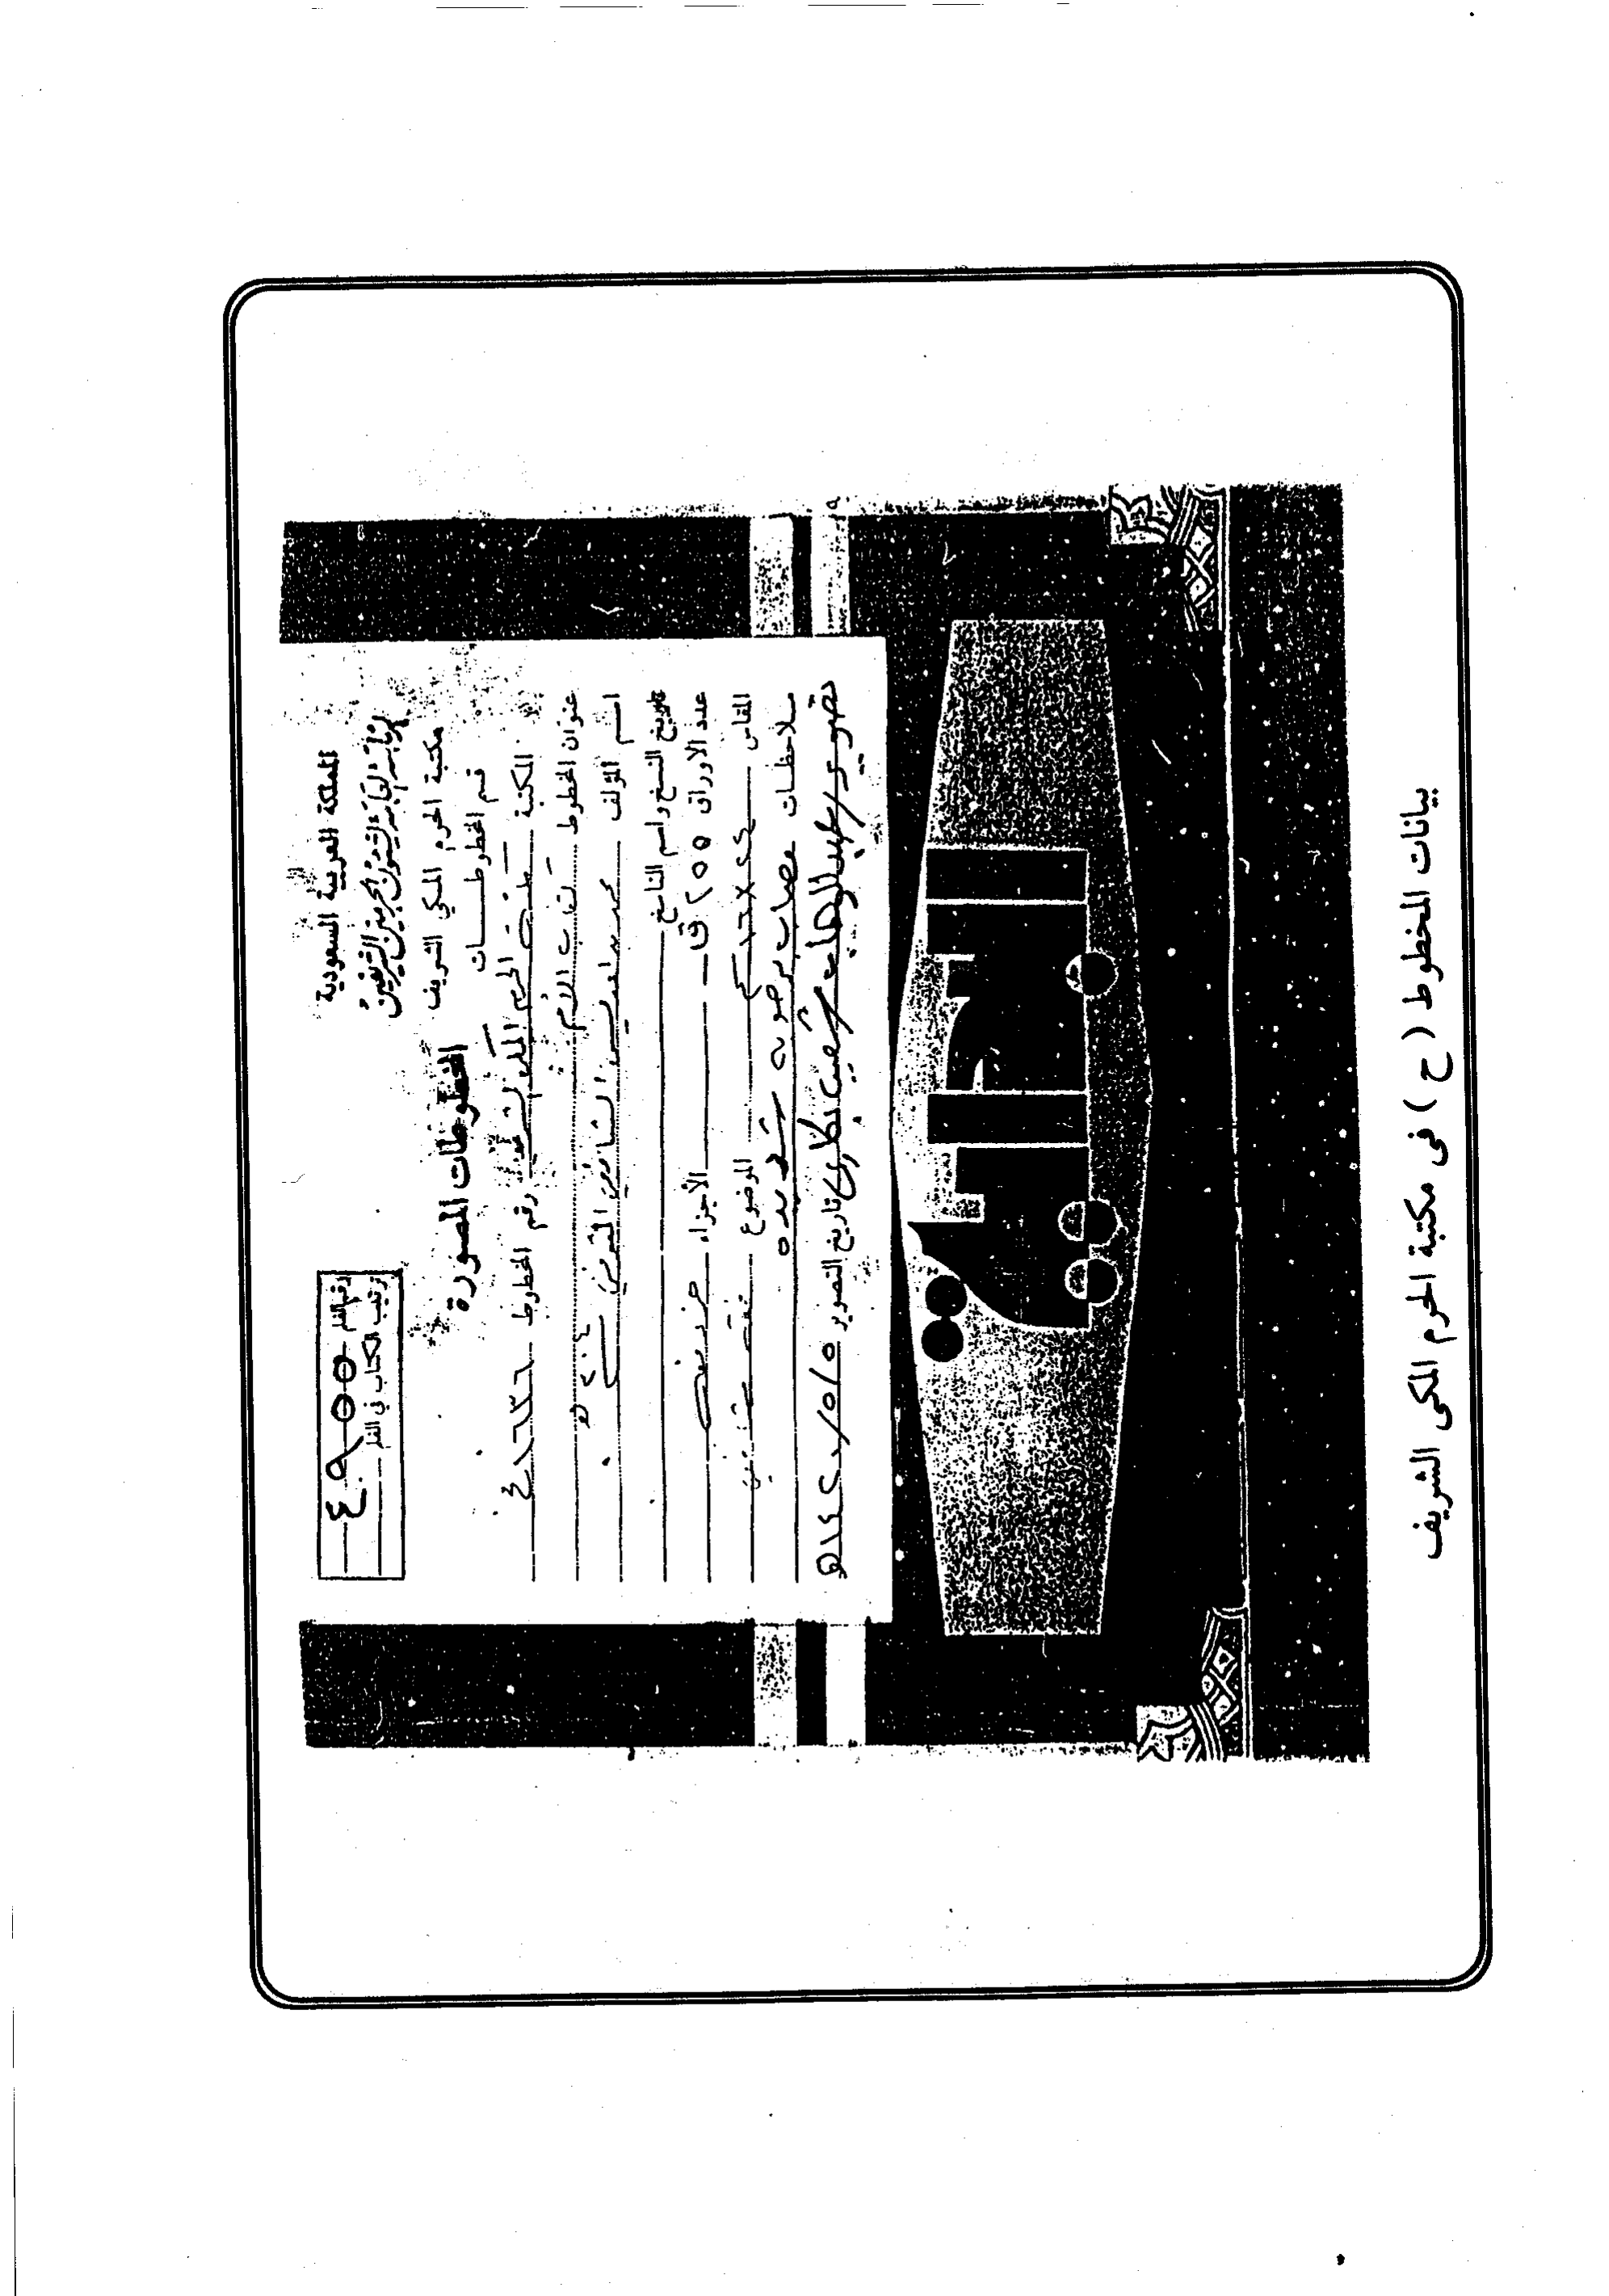 المملكة العربية السعودية
الرئاسة العامة لشئون الحرمين الشريفين
مكتبة الحرم المكي الشريف
قسم المخطوطات
رقم الفلم ٤٩٥٥
ترتيب الكتاب في الفلم
المخطوطات المصورة
المكتبة مكتبة الحرم المكي الشريف رقم المخطوط
عنوان المخطوط كتاب الأم
اسم المؤلف محمد بن ادريس الشافعي المتوفى سنة ٢٠٤ هـ
تاريخ النسخ واسم الناسخ
عدد الاوراق ٢٥٥ ق الأجزاء
المقاس الموضوع فقه شافعي
ملاحظات مصاب برطوبة شديدة
تصوير تاريخ التصوير
بيانات المخطوط ( ح ) فى مكتبة الحرم المكى الشريف